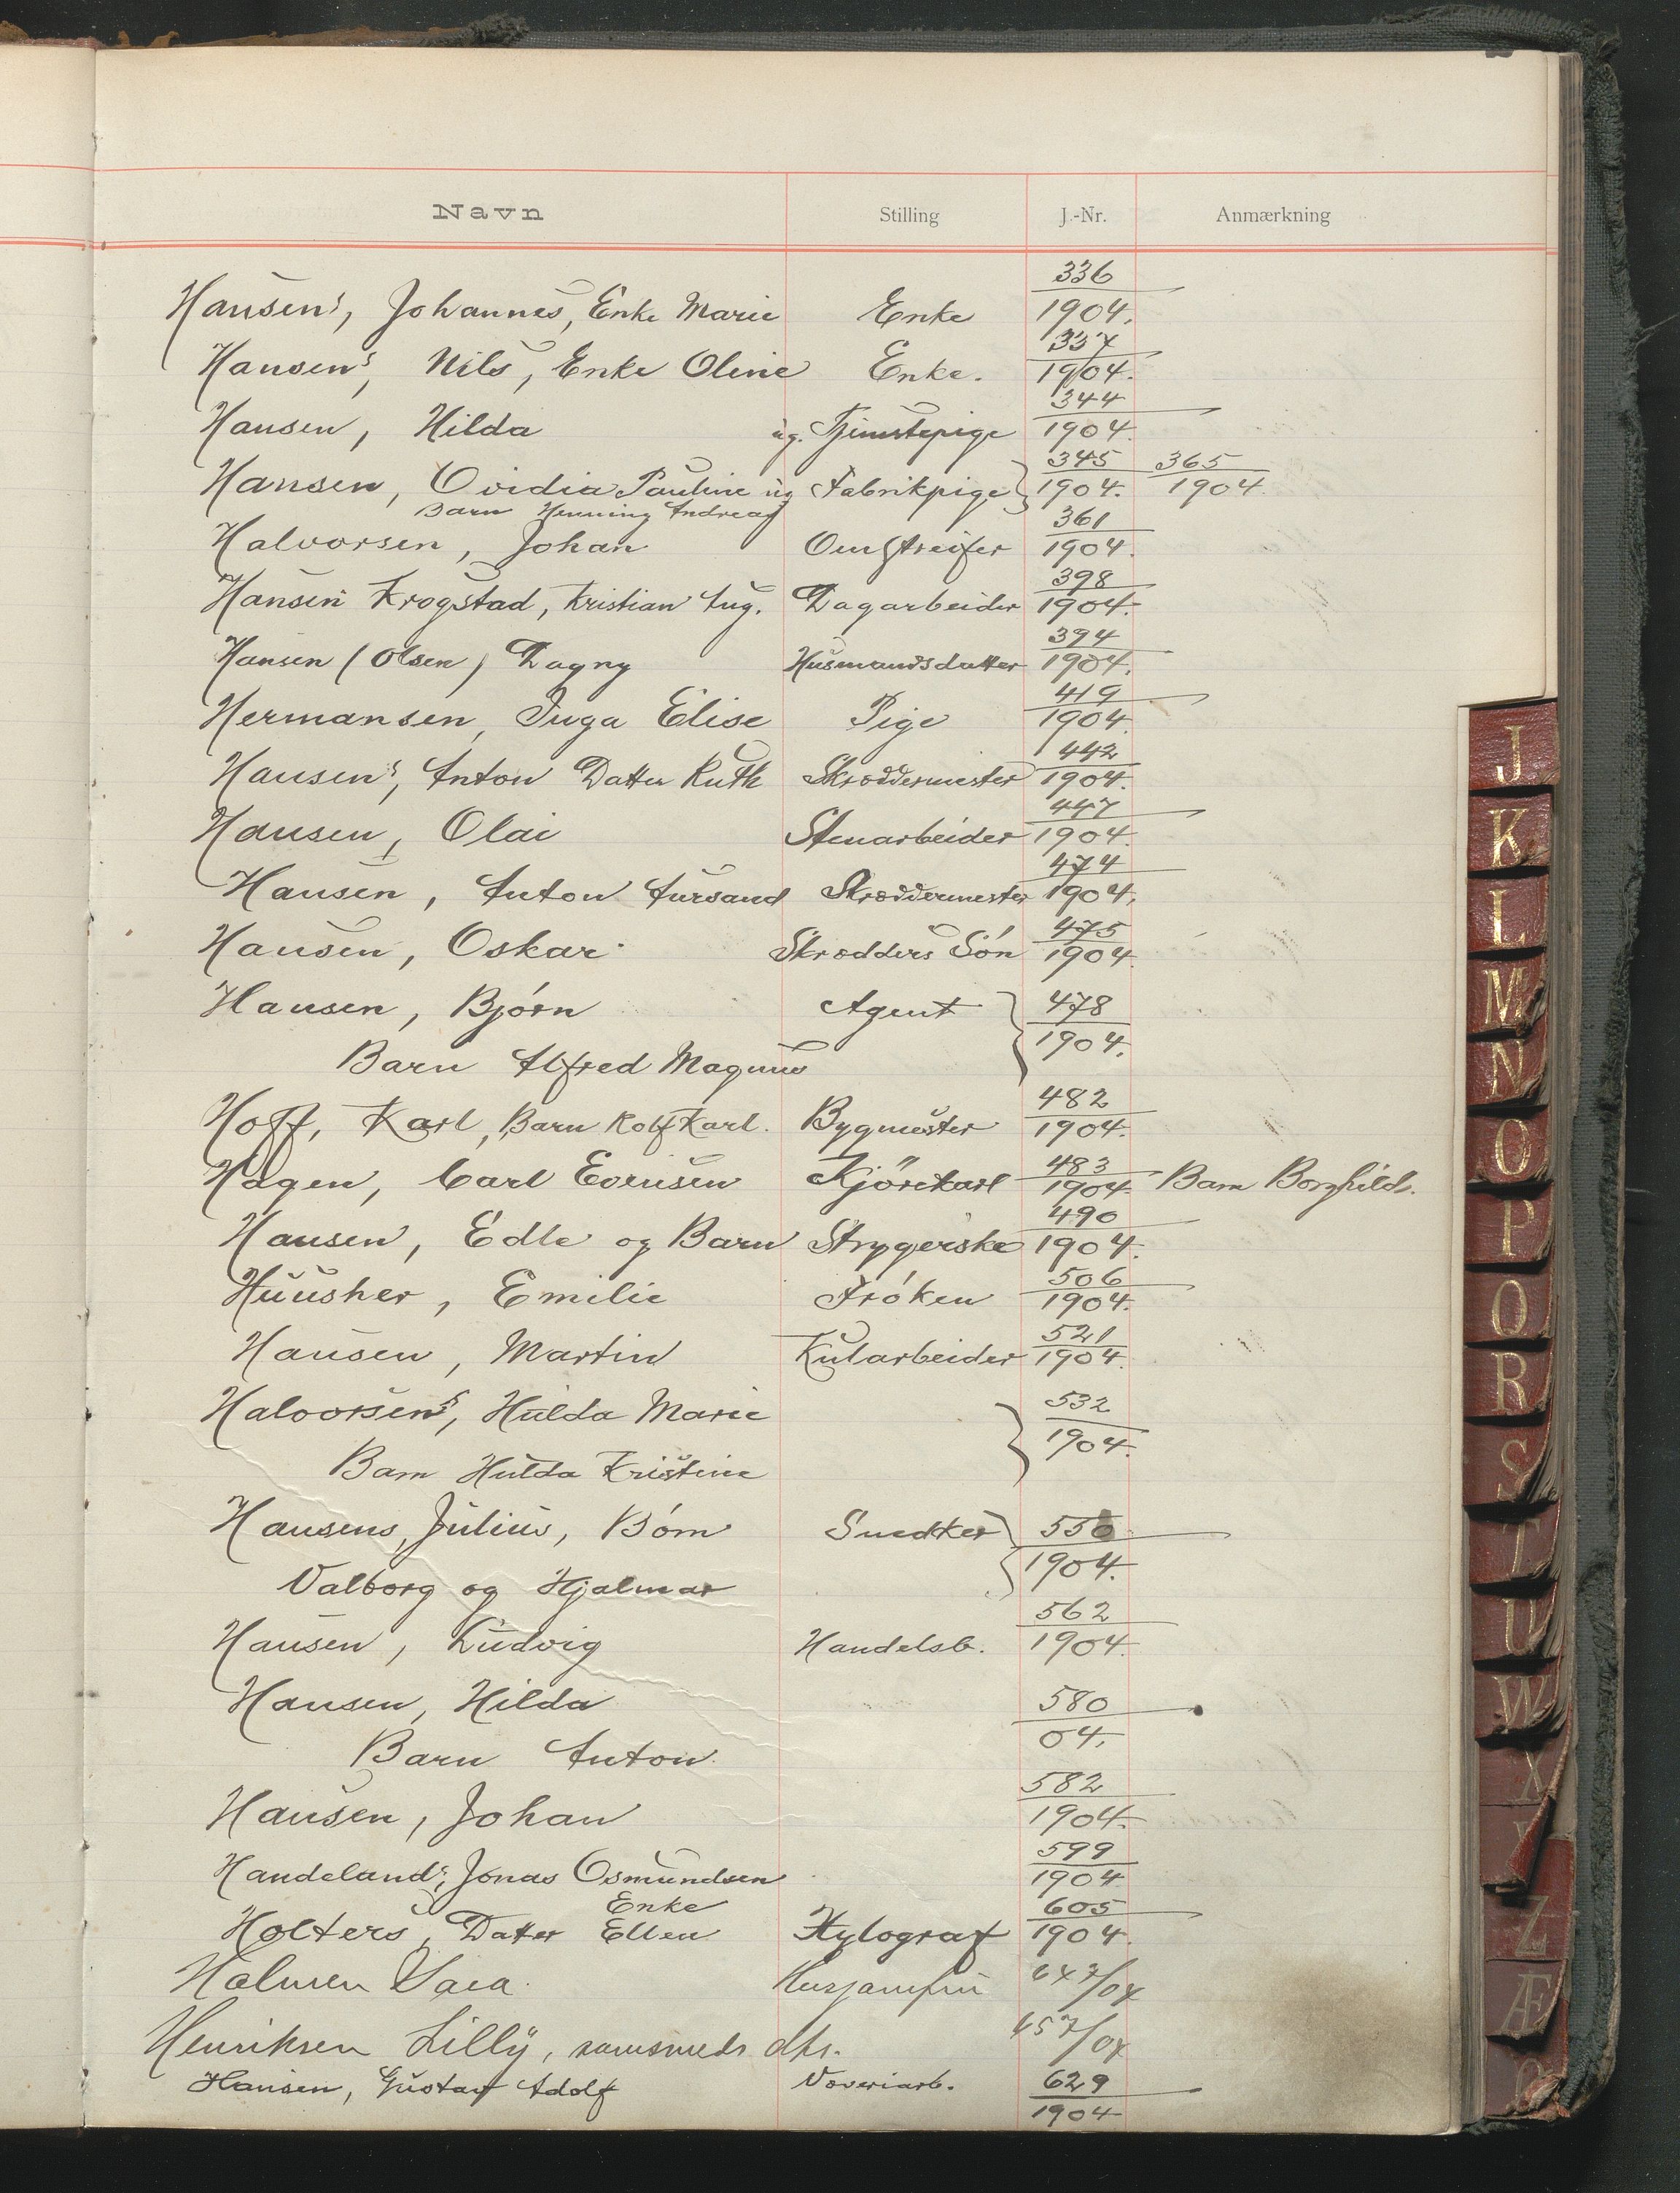 Navn Stilling J.-Nr. Anmærkning
Hansen's, Johannes, Enke Marie Enke 336/1904.
Hansen's, Nils, Enke Oline Enke. 337/1904.
Hansen, Hilda ug. Tjenestepige 344/1904.
Hansen, Ovidia Pauline ug Fabrikpige 345/1904. 365/1904
Barn Henning Andreas
Halvorsen, Johan Omstreifer 361/1904.
Hansen Krogstad, Kristian Aug. Dagarbeider 398/1904.
Hansen (Olsen) Dagny Husmandsdatter 394/1904.
Hermansen, Inga Elise Pige 419/1904.
Hansen's, Anton Datter Ruth Skræddermester 442/1904.
Hansen, Olai Stenarbeider 447/1904.
Hansen, Anton Aursand Skræddermester 474/1904.
Hansen, Oskar Skrædders Søn 475/1904.
Hansen, Bjørn Agent 478/1904.
Barn Alfred Magnus
Hoff, Karl, Barn Rolf Karl. Bygmester 482/1904.
Hagen, Carl Evensen Kjørekarl 483/1904 Barn Borghild.
Hansen, Edle og Barn Strygerske 490/1904.
Huusher, Emilie Frøken 506/1904.
Hansen, Martin Kularbeider 521/1904.
Halvorsen's, Hulda Marie 532/1904.
Barn Hulda Kristine
Hansens, Julius, Børn Snedker 550/1904.
Valborg og Hjalmar
Hansen, Ludvig Handelsb. 562/1904.
Hansen, Hilda 580/04.
Barn Anton.
Hansen, Johan 582/1904.
Handeland's, Jonas Osmundsen 599/1904
Enke
Holters, Datter Ellen Xylograf 605/1904.
Holmsen Husjomfru
Henriksen Lilly, dtr. 457/04
Hansen, Gustav Adolf Væveriarb. 629/1904
J
K
L
M
N
O
P
Q
R
S
T
U
W
X
Z
Æ